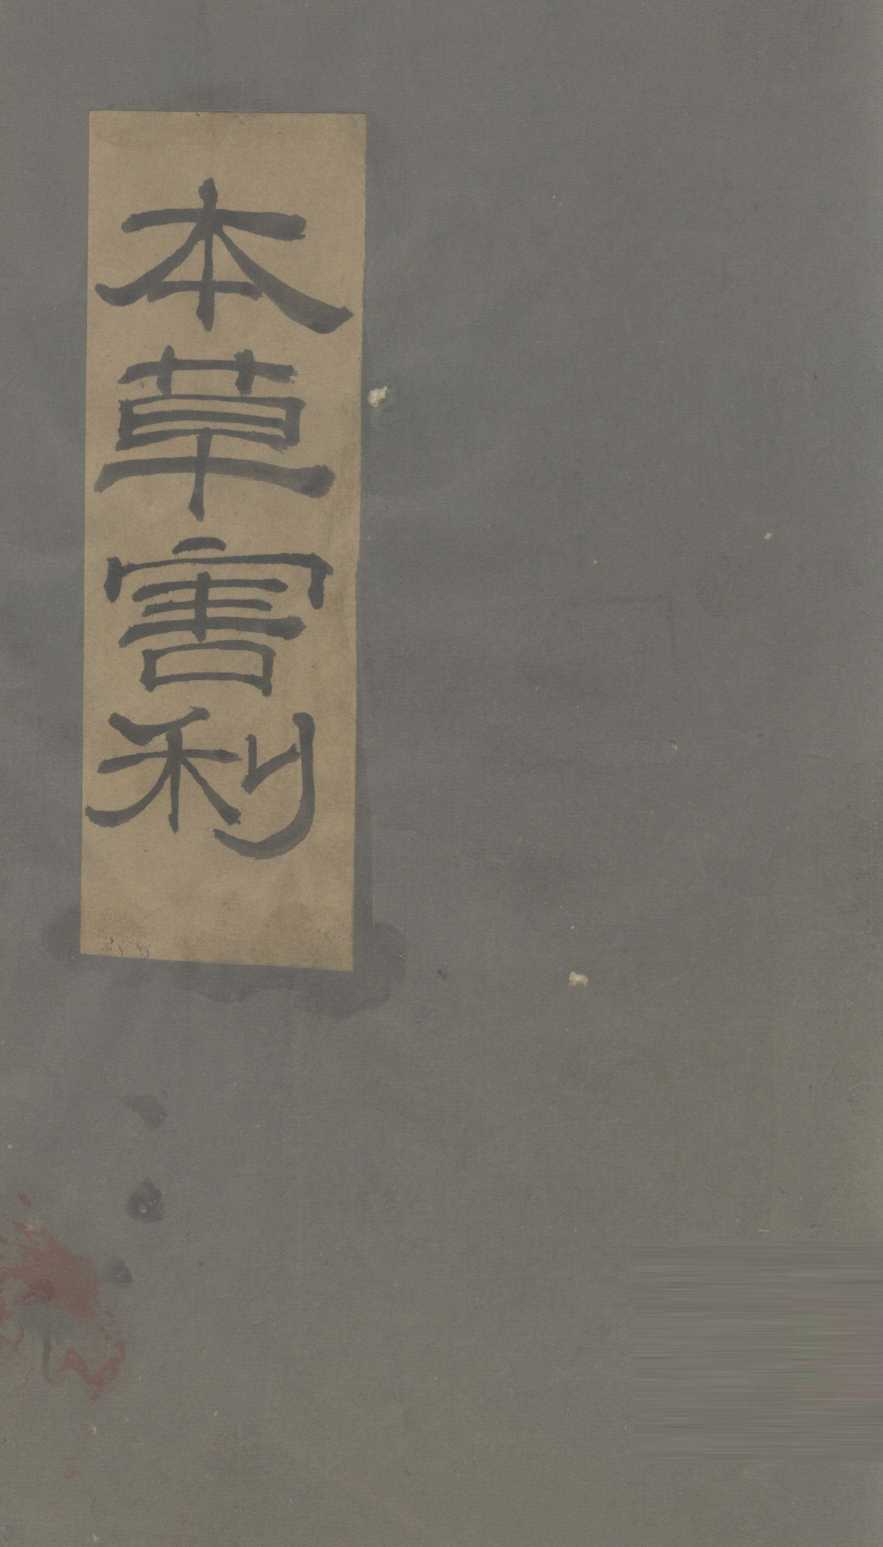 本草害利